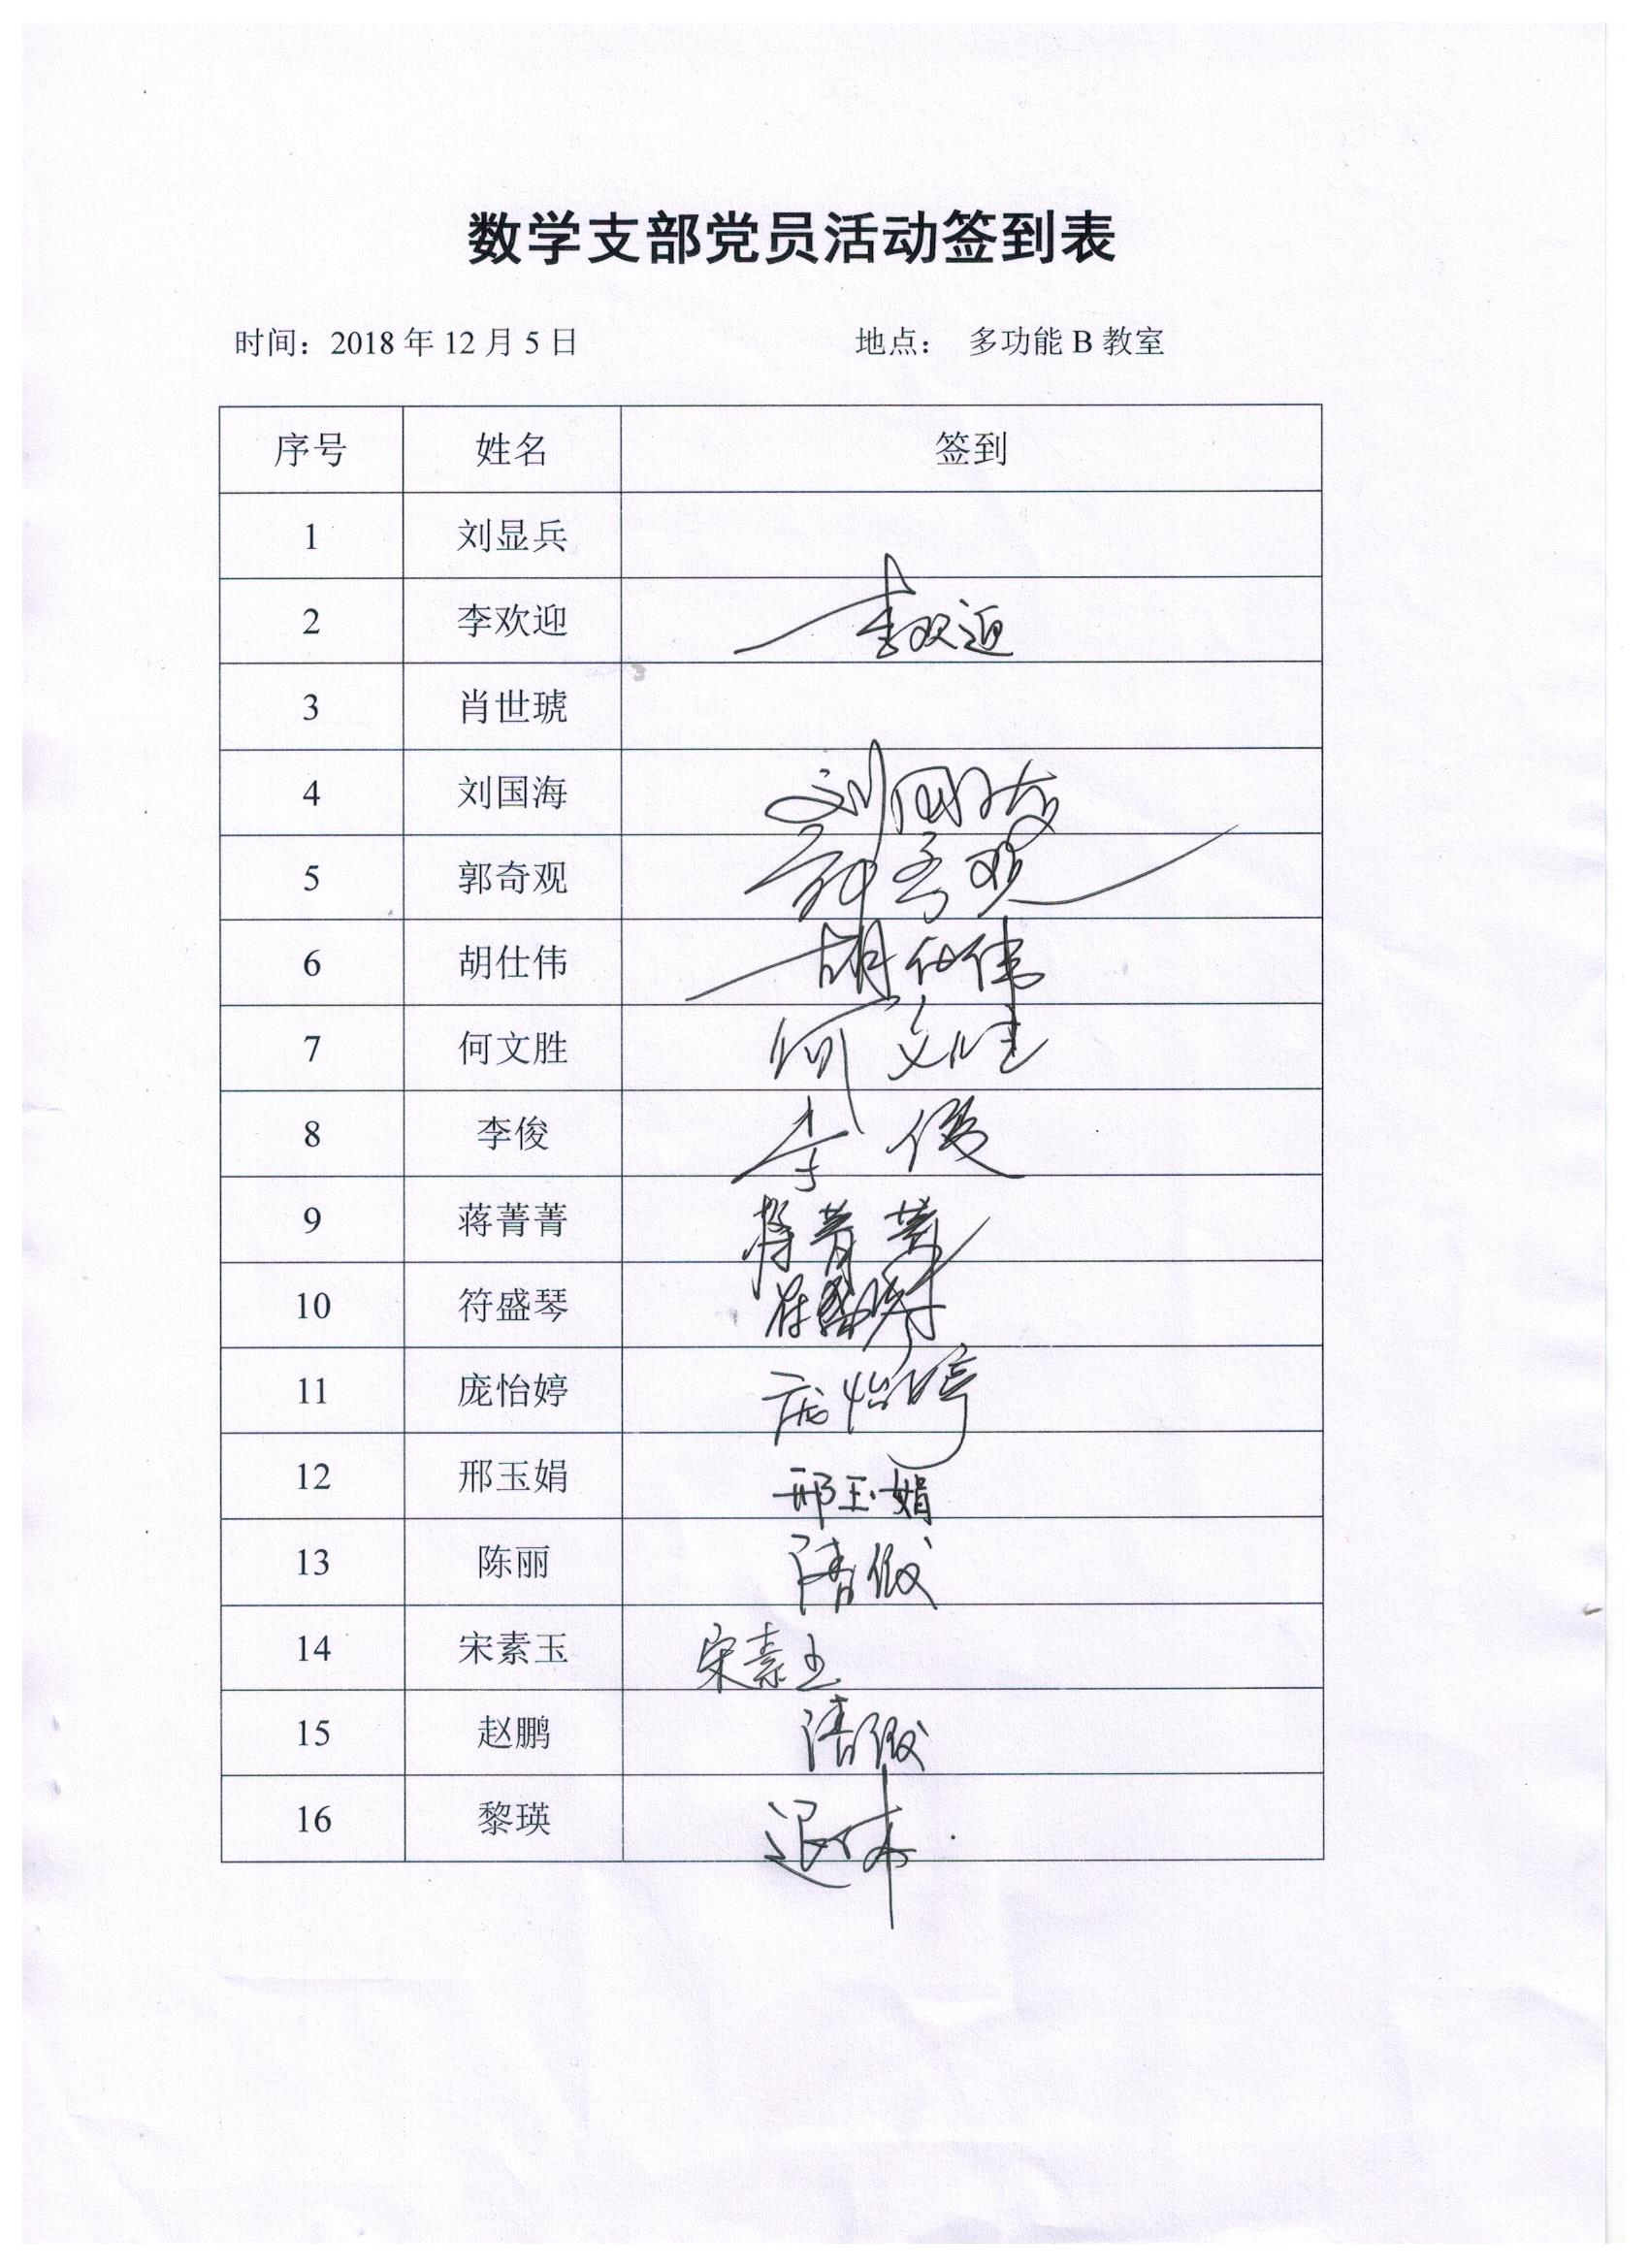 数学支部党员活动签到表
时间：2018 年 12 月 5 日 地点： 多功能 B 教室
序号 姓名 签到
1 刘显兵
2 李欢迎 李欢迎
3 肖世琥
4 刘国海 刘国海
5 郭奇观 郭奇观
6 胡仕伟 胡仕伟
7 何文胜 何文胜
8 李俊 李俊
9 蒋菁菁 蒋菁菁
10 符盛琴 符盛琴
11 庞怡婷 庞怡婷
12 邢玉娟 邢玉娟
13 陈丽 请假
14 宋素玉 宋素玉
15 赵鹏 请假
16 黎瑛 退休